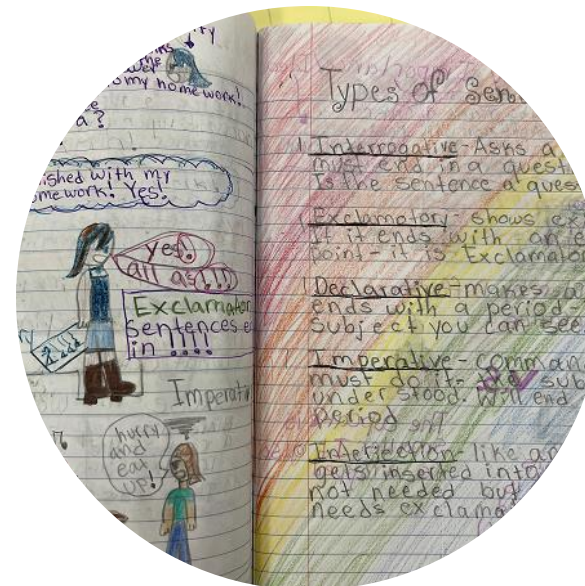 to my homework!
a?
ished with my
omework! Yes!
yes!
all as(!!!)
Exclamator
Sentences e
in !!!!
Imperati
7.
hurry
and
eat
up!
Types of Sen
1. Interrogative - Asks a
must end in a quest
Is the sentence a ques
Exclamatory - shows ex
If it ends with an e
point - it is Exclamator
Declarative - makes a
ends with a period -
Subject you can see
Imperative - comman
must do it. sub
under stood. Will end
period
Interjection - like an
gets inserted into
not needed but
needs exclama